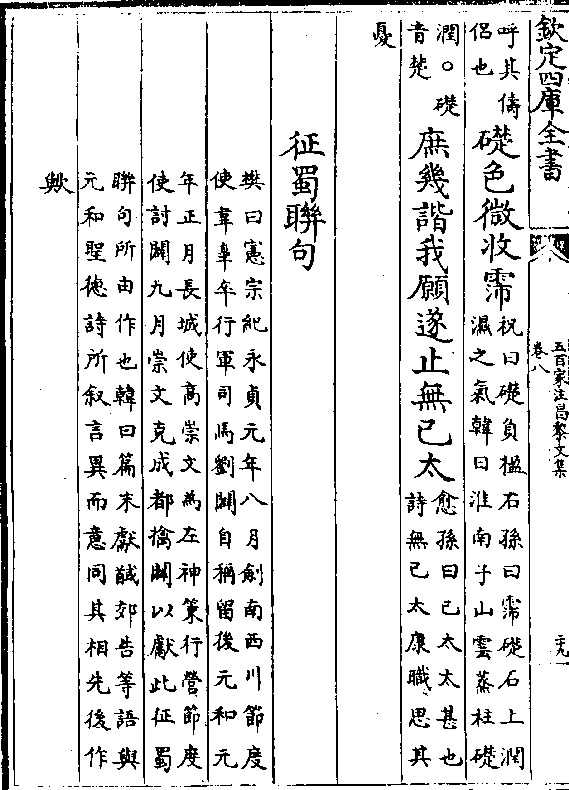 欽定四庫全書
五百家注昌黎文集
卷八
呼其儔
侶也
礎色微收霈
祝曰礎負楹石孫曰霈礎石上潤
濕之氣韓曰淮南子山雲蒸柱礎
潤○礎
音楚
庶幾諧我願遂止無已太
愈孫曰已太太甚也
詩無已太康職思其
憂
征蜀聯句
樊曰憲宗紀永貞元年八月劍南西川節度
使韋臯卒行軍司馬劉闢自稱留後元和元
年正月長城使髙崇文為左神策行營節度
使討闢九月崇文克成都擒闢以獻此征蜀
聯句所由作也韓曰篇末獻馘郊告等語與
元和聖徳詩所叙言異而意同其相先後作
歟